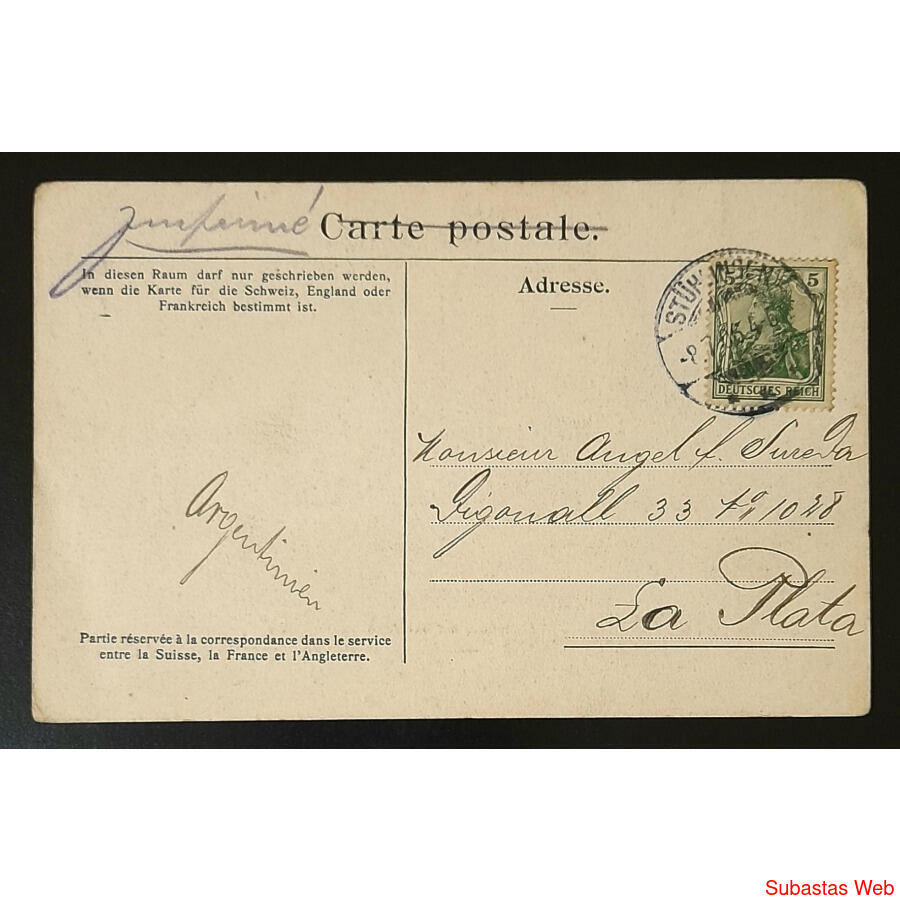 Imprimé
Carte postale.
In diesen Raum darf nur geschrieben werden,
wenn die Karte für die Schweiz, England oder
Frankreich bestimmt ist.
Adresse.
5
DEUTSCHES REICH
Monsieur Angel f. Sureda
Digonall 33 1028
Argentinien
La Plata
Partie réservée à la correspondance dans le service
entre la Suisse, la France et l'Angleterre.
Subastas Web